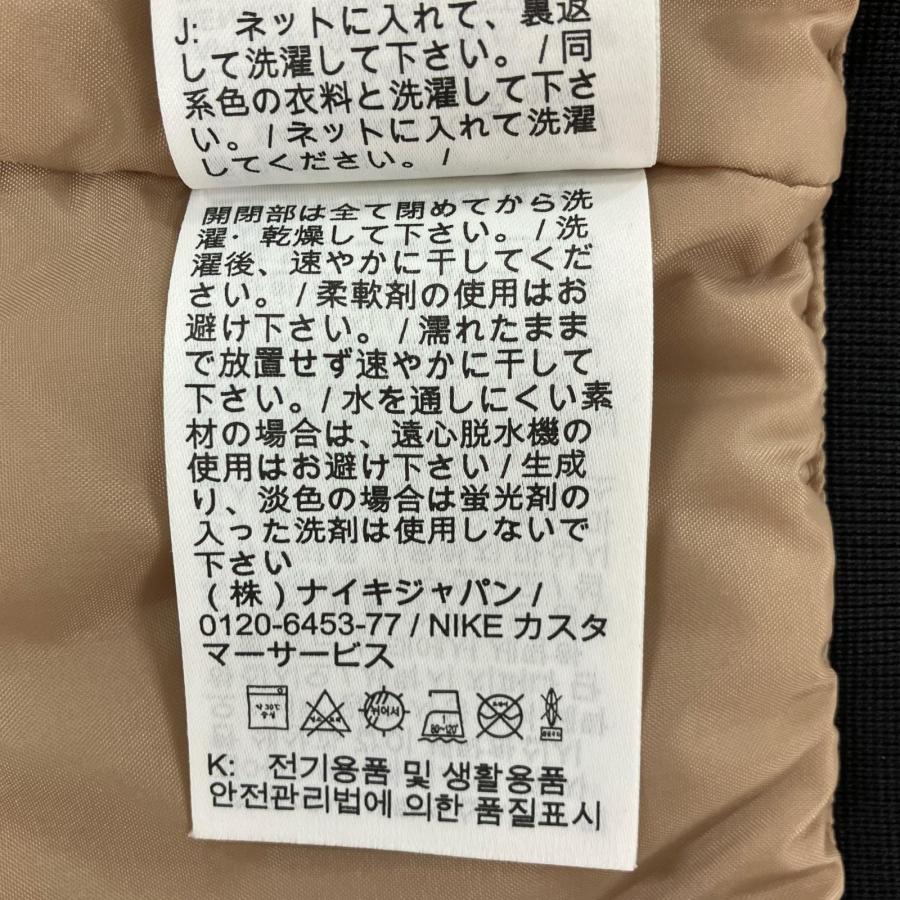 J: ネットに入れて、裏返
して洗濯して下さい。 / 同
系色の衣料と洗濯して下さ
い。 / ネットに入れて洗濯
してください。 /
開閉部は全て閉めてから洗
濯・乾燥して下さい。 / 洗
濯後、速やかに干してくだ
さい。 / 柔軟剤の使用はお
避け下さい。 / 濡れたまま
で放置せず速やかに干して
下さい。 / 水を通しにくい素
材の場合は、遠心脱水機の
使用はお避け下さい / 生成
り、淡色の場合は蛍光剤の
入った洗剤は使用しないで
下さい
(株)ナイキジャパン /
0120-6453-77 / NIKE カスタ
マーサービス
약 30℃ 중성 염소표백 뉘어서 1 80~120°
K: 전기용품 및 생활용품
안전관리법에 의한 품질표시